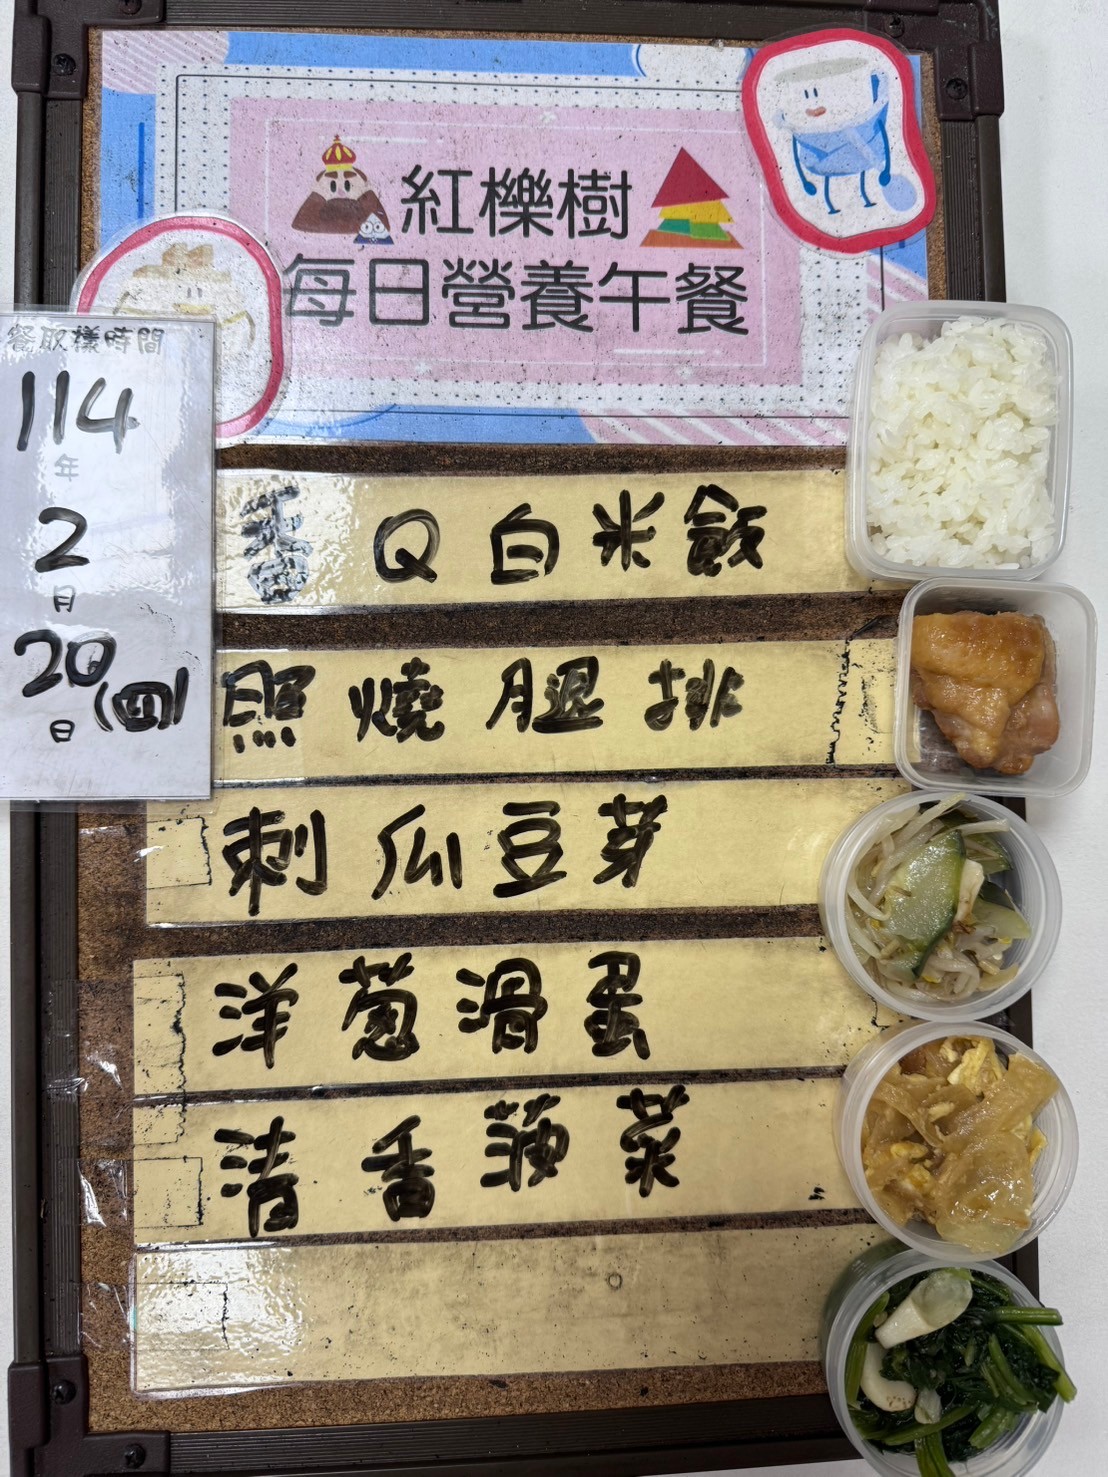 紅櫟樹
每日營養午餐
餐取樣時間
114
年
2
月
20(四)
日
香Q白米飯
照燒腿排
刺瓜豆芽
洋蔥滑蛋
清香蔬菜